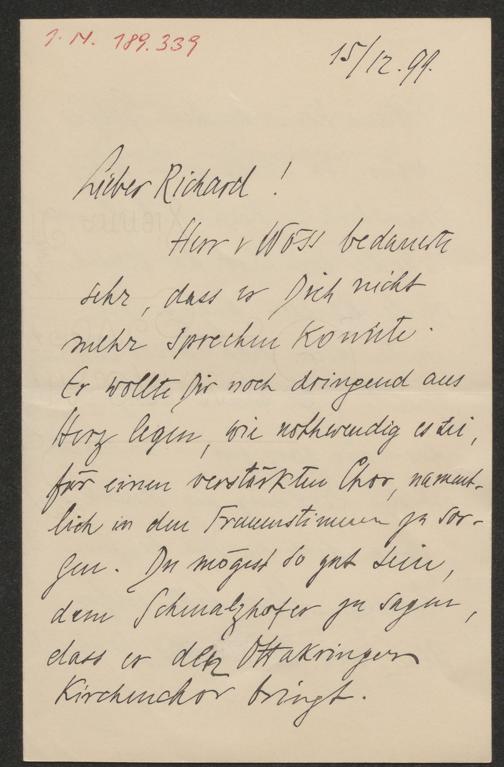 I. N. 189.339
15/12.99.
Lieber Richard!
Herr v Wöss bedauerte
sehr, dass er Dich nicht
mehr sprechen konnte.
Er wollte Dir noch dringend ans
Herz legen, wie nothwendig es sei,
für einen verstärkten Chor, nament-
lich in den Frauenstimmen zu sor-
gen. Du mögest so gut sein,
dem Schmalzhofer zu sagen,
dass er den Ottakringer
Kirchenchor bringt.